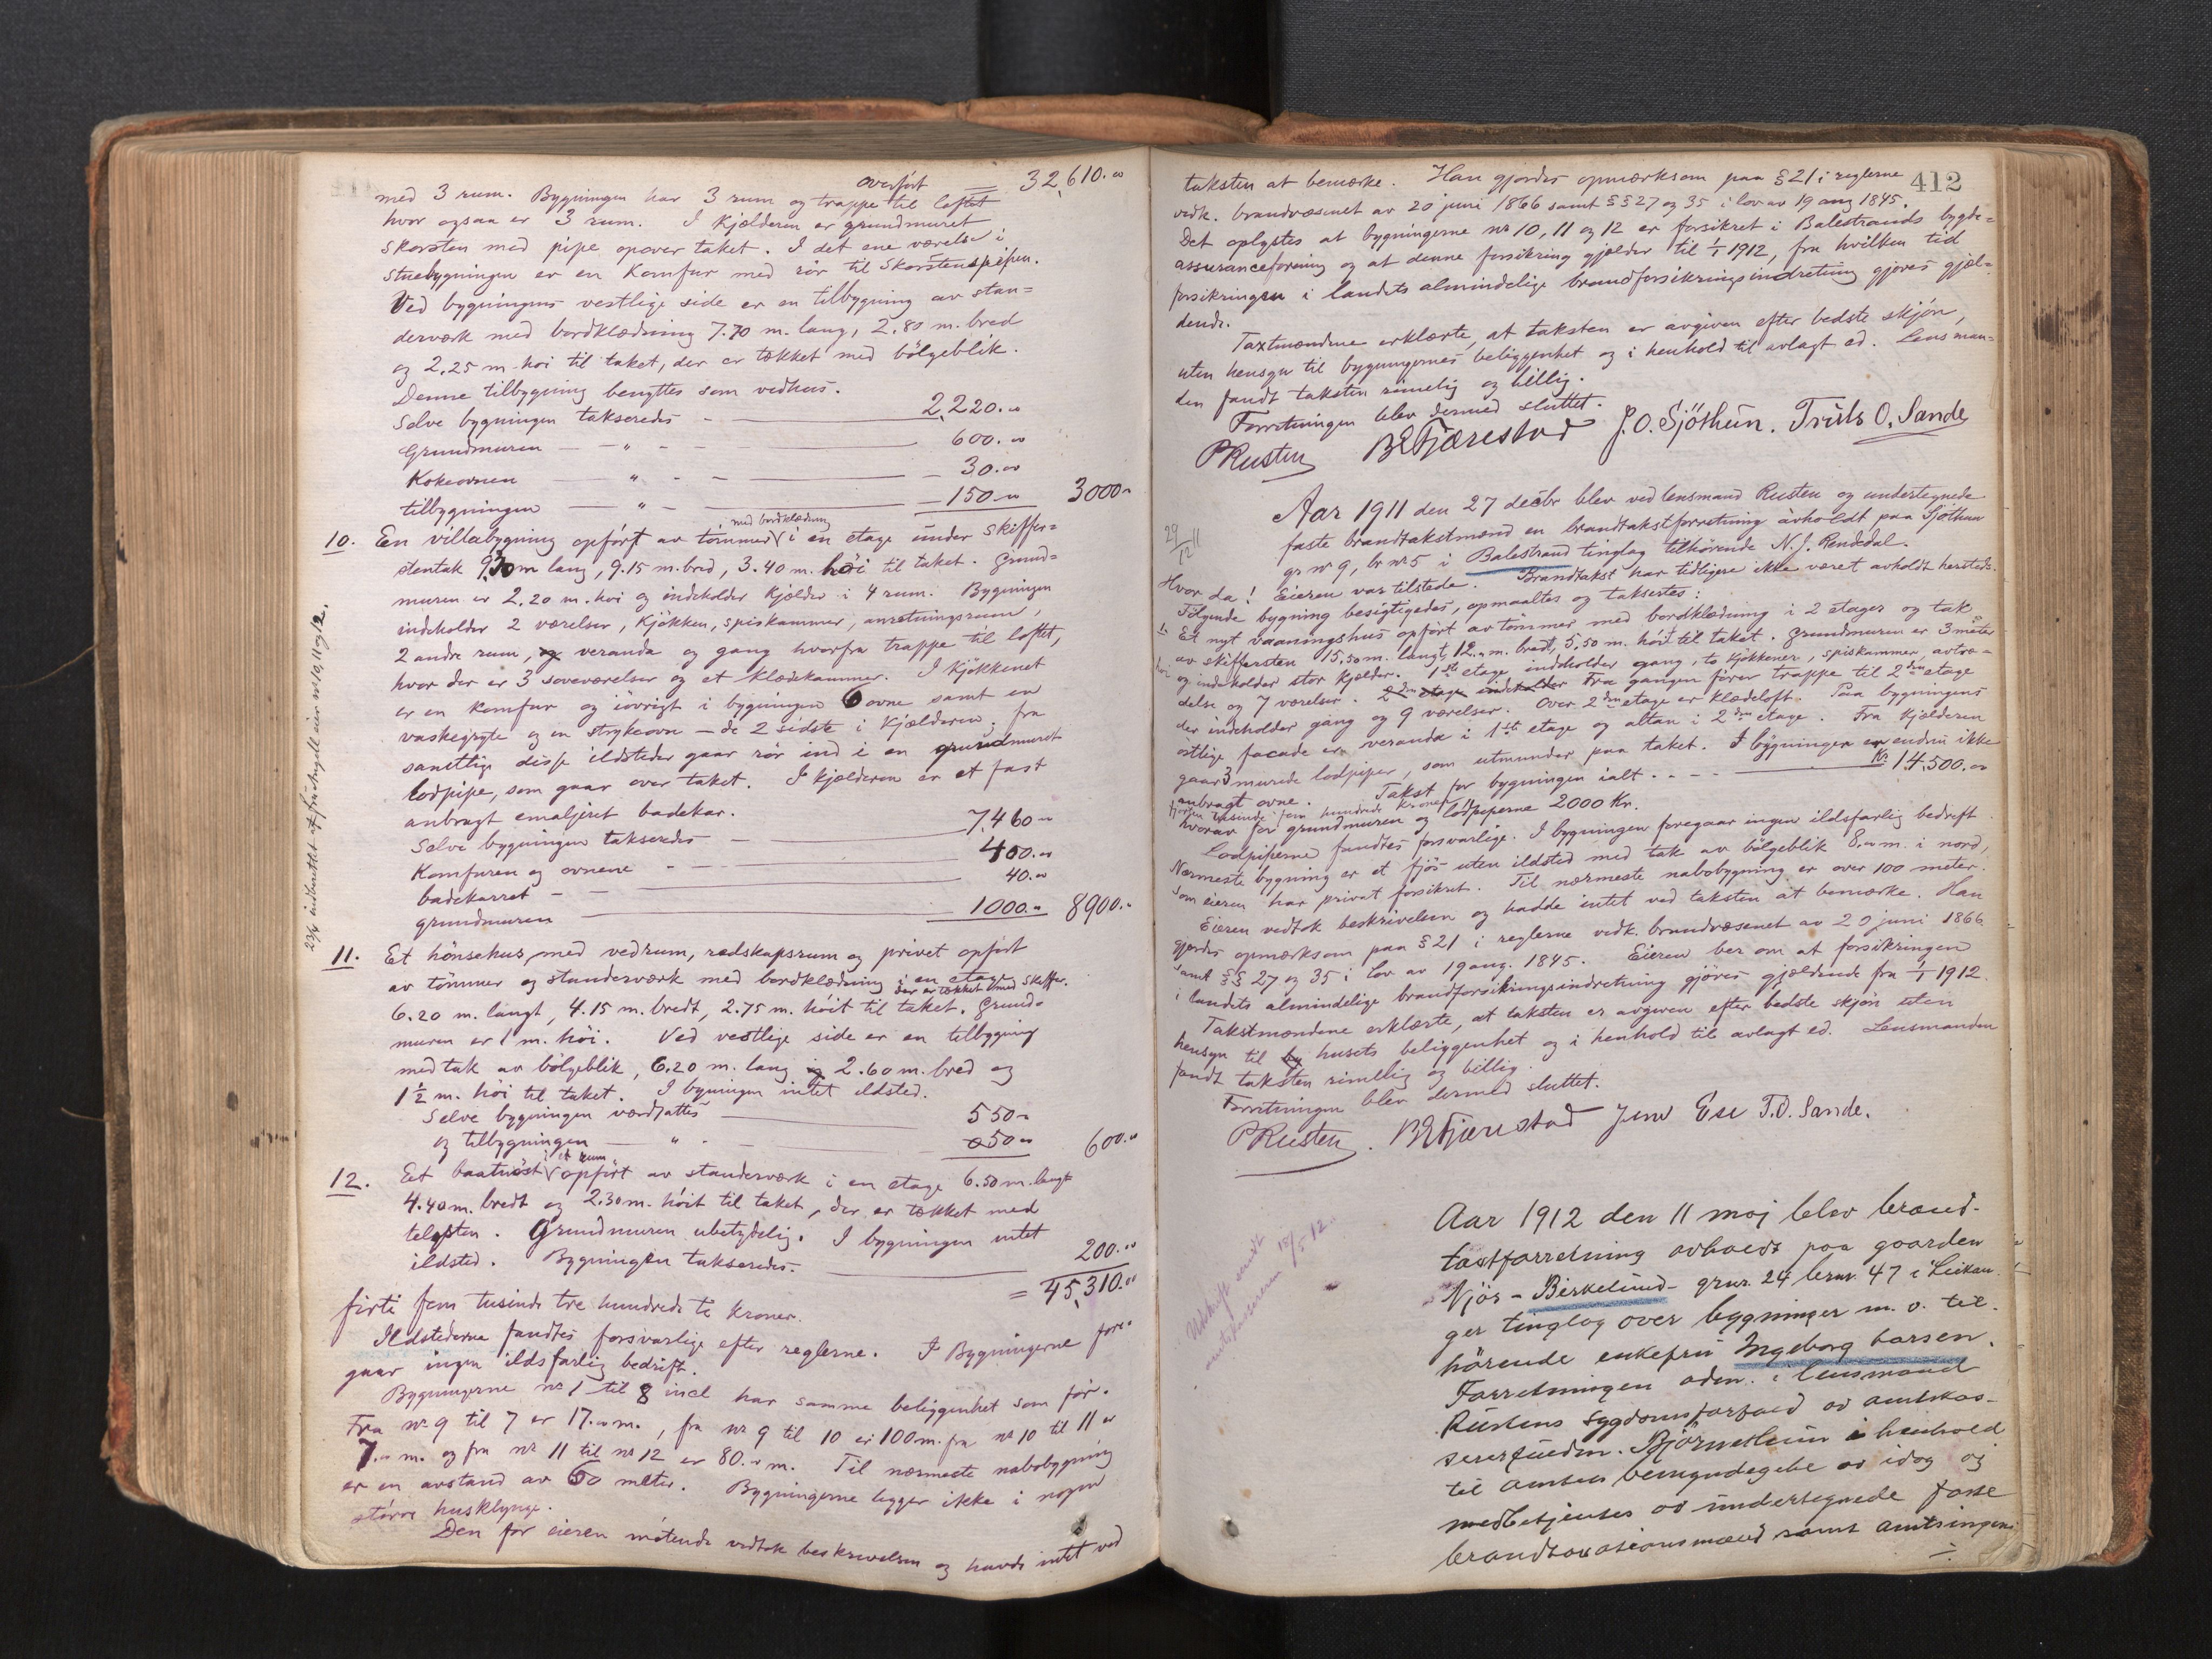 overført = 32,610.00
med 3 rum. Bygningen har 3 rum og trappe til loftet
hvor ogsaa er 3 rum. I kjælderen er grundmuret
skorsten med pipe opover taket. I det ene værelse i
stuebygningen er en komfur med rör til skorstenspipen.
Ved bygningens vestlige side er en tilbygning av stan=
derværk med bordklædning 7.70 m. lang, 2.80 m. bred
og 2.25 m höi til taket, der er tækket med bölgeblik.
Denne tilbygning benyttes som vedhus.
Selve bygningen takseredes — 2,220.00
Grundmuren — " — 600.00
Kokeovnen — " — 30.00
tilbygningen — " — 150.00 3000.
10. En villabygning opført av tömmer med bordklædning i en etage under skiffer=
stentak 9.70 m lang, 9.15 m. bred, 3.40 m. höi til taket. Grund=
muren er 2.20 m. höi og indeholder kjælder i 4 rum. Bygningen
indeholder 2 værelser, kjökken, spiskammer, anretningsrum,
2 andre rum, og veranda og gang hvorfra trappe til loftet,
hvor der er 3 soveværelser og et klædekammer. I kjökkenet
er en komfur og iövrigt i bygningen 6 ovne samt en
vaskegryte og en strykeovn — de 2 sidste i kjælderen. fra
samtlige disse ildsteder gaar rör ind i en grundmuret
lodpipe, som gaar over taket. I kjælderen er et fast
anbragt emaljeret badekar.
Selve bygningen takseredes — 7,460.00
Komfuren og ovnene — 400.00
badekarret — 40.00
grundmuren — 1000.00 8900.00
23/6 utbrettet af eier nr 10, 11 og 12.
11. Et hönsehus med vedrum, redskapsrum og privet opfört
av tömmer og standerværk med bordklædning i en etage der er tækket med skiffer.
6.20 m. langt, 4.15 m. bredt, 2.75 m. höit til taket. Grund=
muren er 1 m. höi. Ved vestlige side er en tilbygning
med tak av bölgeblik, 6.20 m. lang og 2.60 m. bred og
1½ m. höi til taket. I bygningen intet ildsted.
Selve bygningen værdsattes — 550.00
og tilbygningen — " — 50.00 600.00
12. Et baatnöst i et rum opfört av standerværk i en etage 6.50 m. langt
4.40 m. bredt og 2.30 m. höit til taket, der er tækket med
telgsten. Grundmuren ubetydelig. I bygningen intet
ildsted. Bygningen takseredes. — 200.00
= 45,310.00
firti fem tusinde tre hundrede ti kroner.
Ildstederne fandtes forsvarlige efter reglerne. I Bygningerne fore=
gaar ingen ildsfarlig bedrift.
Bygningerne nr 1 til 8 incl har samme beliggenhet som för.
Fra nr 9 til 7 er 17.00 m., fra nr 9 til 10 er 100 m. fra nr 10 til 11 er
7.00 m. og fra nr 11 til nr 12 er 80.00 m. Til nærmeste nabobygning
er en avstand av 60 meter. Bygningerne ligger ikke i nogen
större husklynge.
Den for eieren mötende vedtok beskrivelsen og havde intet ved
412
taksten at bemærke. Han gjordes opmærksom paa § 21 i reglerne
vedk. brandvæsenet av 20 juni 1866 samt §§ 27 og 35 i lov av 19 aug 1845.
Det oplystes at bygningerne nr 10, 11 og 12 er forsikret i Balestrands bygde=
assuranceforening og at denne forsikring gjælder til 1/1 1912, fra hvilken tid
forsikringen i landets almindelige brandforsikringsindretning gjøres gjæl=
dende.
Taxtmændene erklærte, at taksten er avgiven efter bedste skjön,
uten hensyn til bygningernes beliggenhet og i henhold til avlagt ed. Lensman=
den fandt taksten rimelig og billig.
Forretningen blev dermed sluttet.
PRusten BEFjærestad J. O. Sjöthun. Truls O. Sande
Aar 1911 den 27 decbr blev ved lensmand Rusten og undertegnede
faste brandtakstmænd en brandtakstforretning avholdt paa Sjöthun
gr nr 9, br nr 5 i Balestrand tinglag tilhörende N. J. Rendedal.
29/12 11
Hvor da! Eieren var tilstede. Brandtakst har tidligere ikke været avholdt hersteds.
Følgende bygning besigtigedes, opmaaltes og takseredes:
1. Et nyt vaaningshus opfört av tömmer med bordklædning i 2 etager og tak
av skiffersten 15.50 m. langt, 12.00 m. bredt, 5.50 m. höit til taket. Grundmuren er 3 meter
höi og indeholder stor kjælder. 1ste etage indeholder gang, to kjökkener, spiskammer, avtræ=
delse og 7 værelser. 2den etage indeholder Fra gangen förer trappe til 2den etage
der indeholder gang og 9 værelser. Over 2den etage er klædeloft. Paa bygningens
östlige facade er veranda i 1ste etage og altan i 2den etage. Fra kjælderen
gaar 3 murede lodpiper, som utmunder paa taket. I bygningen er endnu ikke
anbragt ovne. Takst for bygningen ialt — Kr. 14,500.00
fjorten tusinde fem hundrede kroner
hvorav for grundmuren og lodpiperne 2000 Kr.
Lodpiperne fandtes forsvarlige. I bygningen foregaar ingen ildsfarlig bedrift.
Nærmeste bygning er et fjös uten ildsted med tak av bölgeblik 8.00 m. i nord,
som eieren har privat forsikret. Til nærmeste nabobygning er over 100 meter.
Eieren vedtok beskrivelsen og hadde intet ved taksten at bemærke. Han
gjordes opmærksom paa § 21 i reglerne vedk. brandvæsenet av 20 juni 1866
samt §§ 27 og 35 i lov av 19 aug. 1845. Eieren ber om at forsikringen
i landets almindelige brandforsikringsindretning gjöres gjældende fra 1/1 1912.
Takstmændene erklærte, at taksten er avgiven efter bedste skjön uten
hensyn til by husets beliggenhet og i henhold til avlagt ed. Lensmanden
fandt taksten rimelig og billig.
Forretningen blev dermed sluttet.
PRusten. BEFjærestad Jens Ese T. O. Sande.
Utskrift sendt 15/5 12.
Aar 1912 den 11 maj blev brand-
taxtforretning avholdt paa gaarden
Njös - Birkelund - grnr. 24 brnr. 47 i Leikan-
ger tinglag over bygninger m. v. til-
hörende enkefru Ingeborg Larsen.
Forretningen adm. i lensmand
Rustens sygdomsforfald av amtskas-
sererfuldm. Bjørnethun i henhold
til amtets bemyndigelse av idag og
medbetjentes av undertegnede faste
brandtaxationsmænd samt amtsingeni